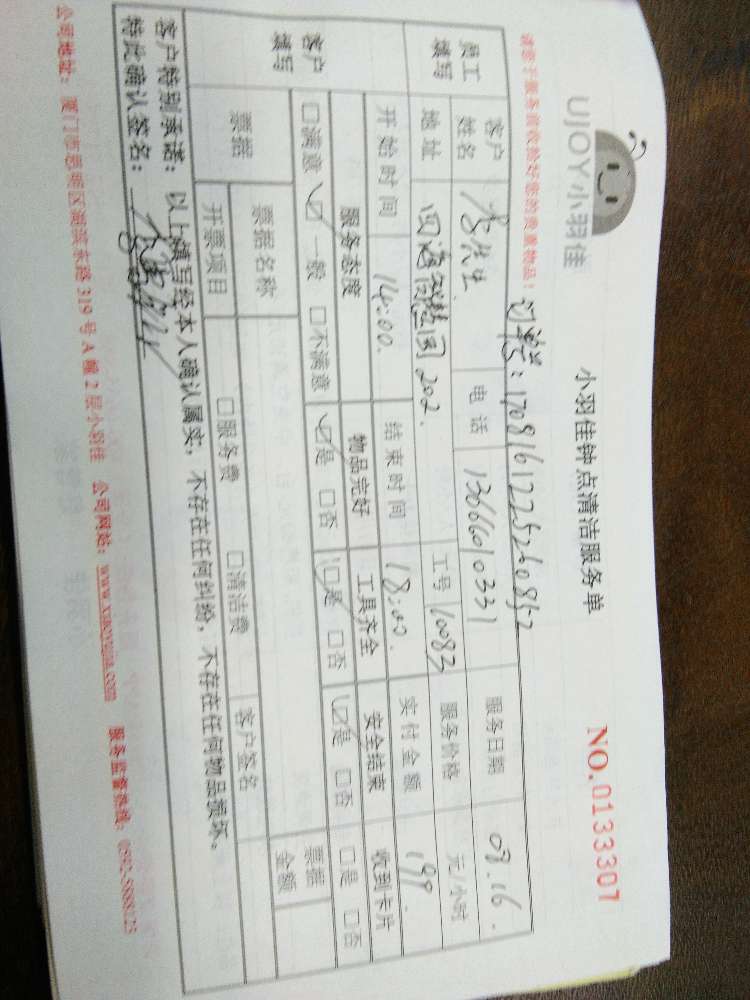 UJOY小羽佳
小羽佳钟点清洁服务单
NO.0133307
请您于服务前收拾好您的贵重物品!
订单号:1708161225260852
员工填写
客户姓名
李先生
电话
13666010331
服务日期
08.16.
地址
202.
工号
10082
服务价格
元/小时
开始时间
14:00.
结束时间
18:00.
实付金额
199
客户填写
服务态度
物品完好
工具齐全
安全结束
收到卡片
□满意 ☑一般 □不满意
☑是 □否
☑是 □否
☑是 □否
□是 □否
票据
票据名称
□服务费 □清洁费
客户签名
票据金额
开票项目
客户特别承诺:以上填写经本人确认属实,不存在任何纠纷,不存在任何物品损坏。
特此确认签名:
公司地址:厦门市思明区湖滨东路319号A幢2层小羽佳 公司网站:www.xiaoyujia.com 服务监督热线:0592-5888123